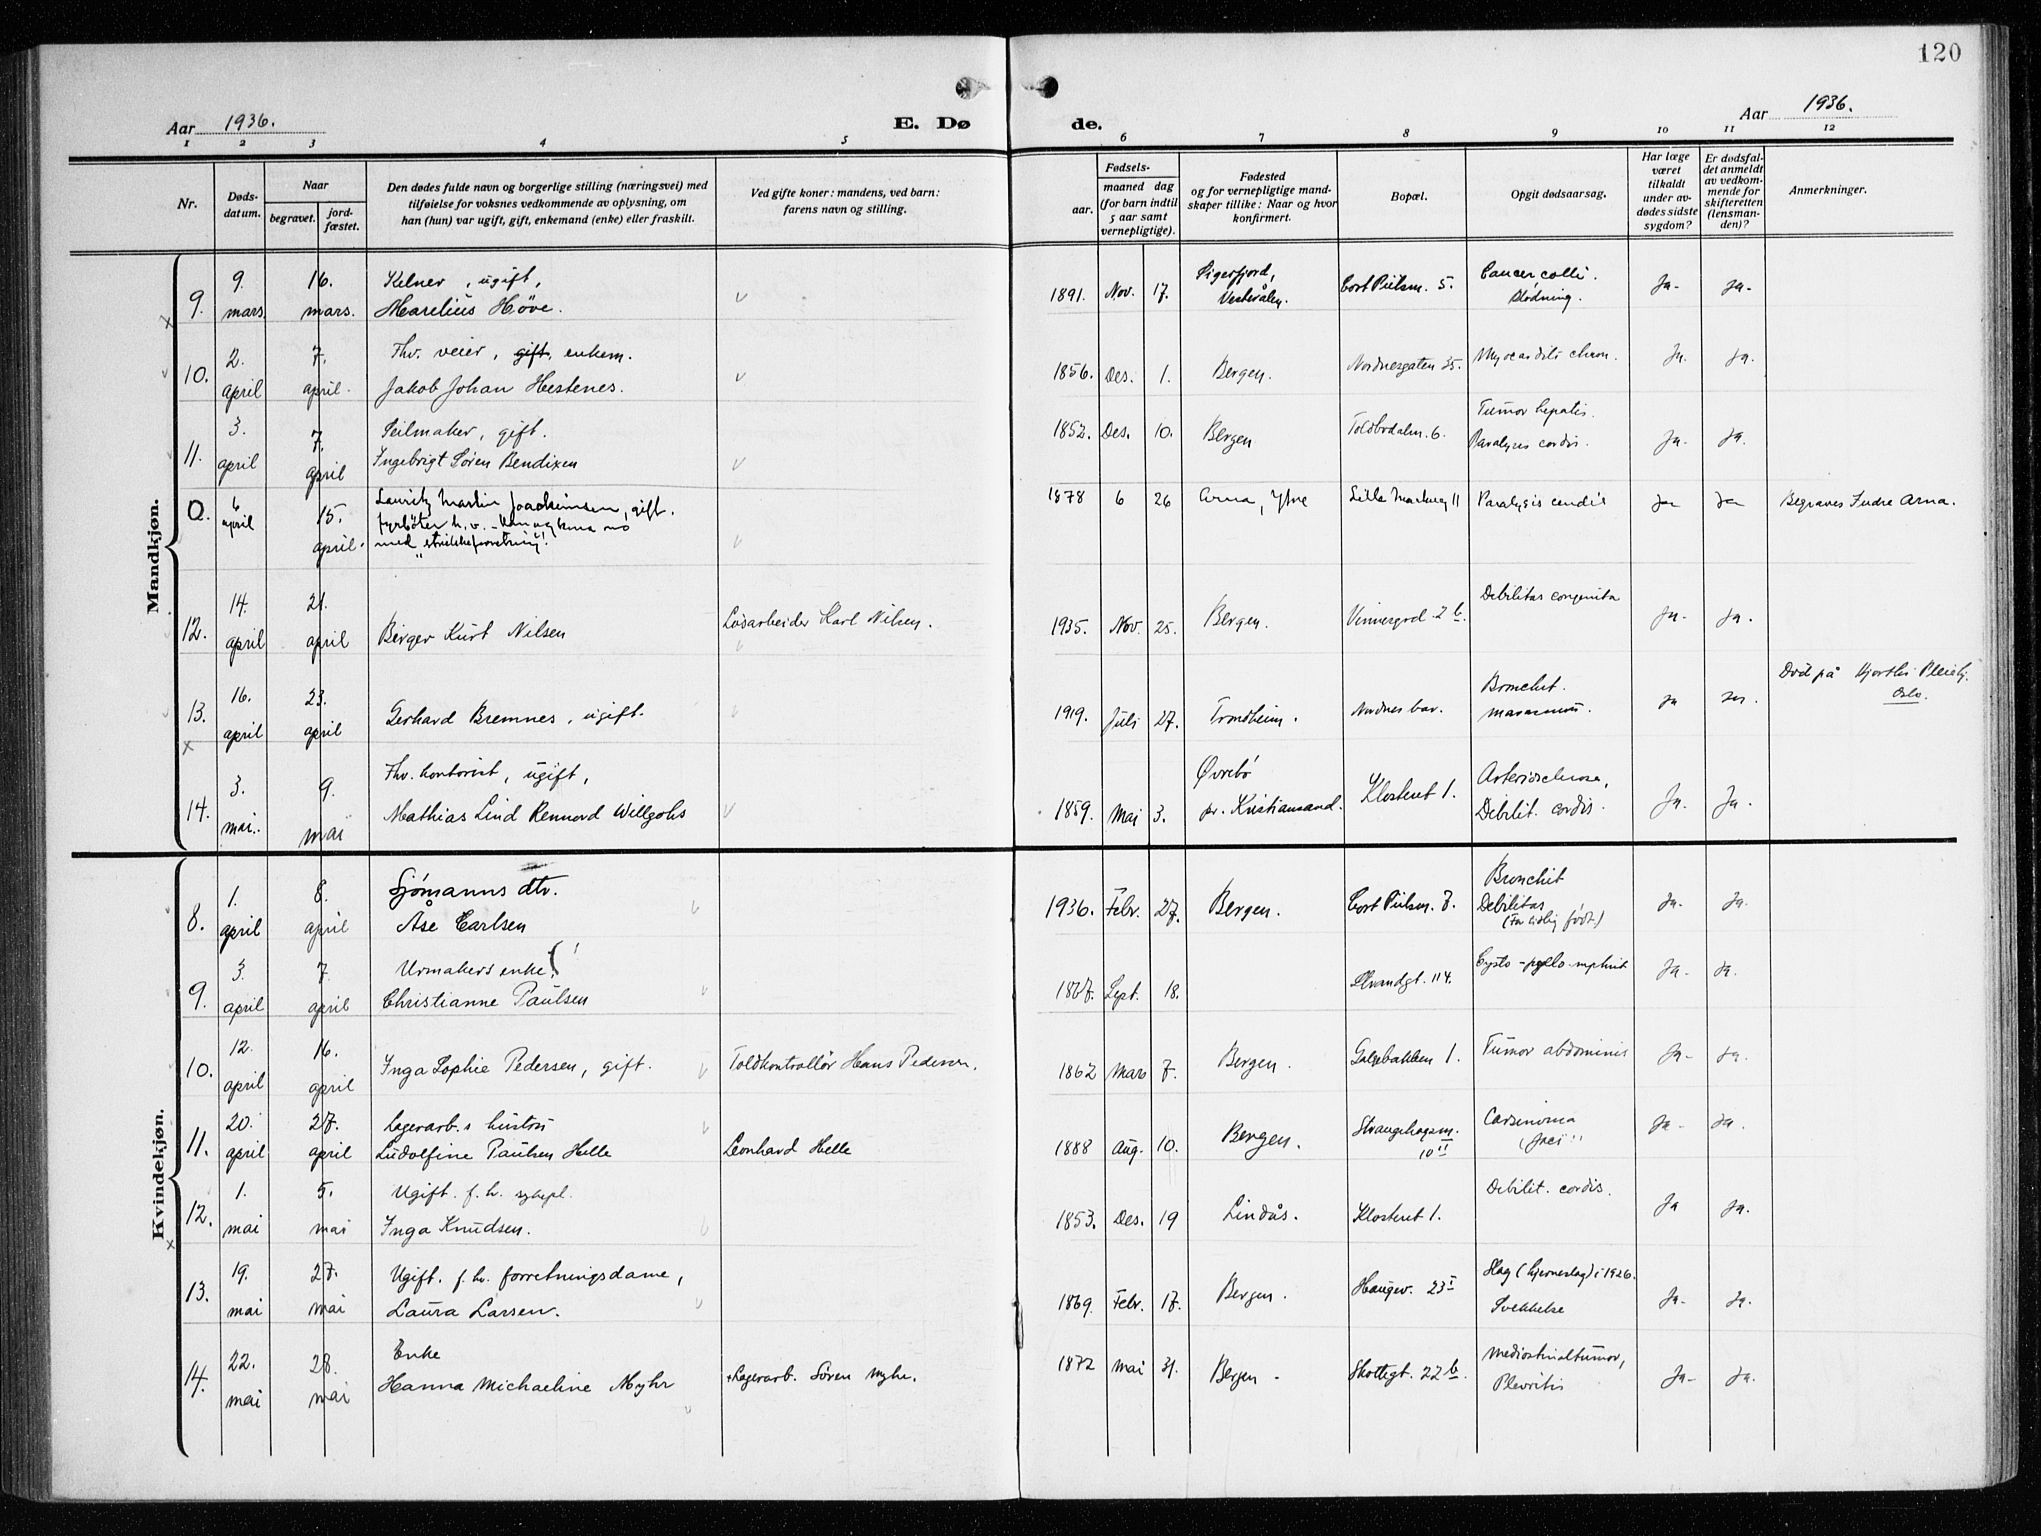 120
Aar 1936.
E. Dø de.
Aar 1936.
1 2 3 4 5 6 7 8 9 10 11 12
Nr.
Døds-
datum.
Naar
begravet.
jord-
fæstet.
Den dødes fulde navn og borgerlige stilling (næringsvei) med
tilføielse for voksnes vedkommende av oplysning, om
han (hun) var ugift, gift, enkemand (enke) eller fraskilt.
Ved gifte koner: mandens, ved barn:
farens navn og stilling.
Fødsels-
aar.
maaned dag
(for barn indtil
5 aar samt
vernepligtige).
Fødested
og for vernepligtige mand-
skaper tillike: Naar og hvor
konfirmert.
Bopæl.
Opgit dødsaarsag.
Har læge
været
tilkaldt
under av-
dødes sidste
sygdom?
Er dødsfal-
det anmeldt
av vedkom-
mende for
skifteretten
(lensman-
den)?
Anmerkninger.
Mandkjøn.
9. 9. mars 16. mars. Kelner, ugift,
Marelius Höve. 1891. Nov. 17. Sigerfjord,
Vesterålen. Cort Piilsm. 5. Cancer colli.
Blödning. Ja- Ja-
10. 2. april 7. april. Fhv. veier, gift, enkem.
Jakob Johan Hestenes. 1856. Des. 1. Bergen. Nordnesgaten 35. Myocardit chron. Ja. Ja.
11. 3. april 7. april Seilmaker, gift.
Ingebrigt Sören Bendixen 1852. Des. 10. Bergen Toldbodalm. 6. Tumor hepatis.
Paralyses cordis. Ja- Ja.
0. 6 april 15. april. Lauritz Martin Joachimsen, gift.
fyrböter
med 1878 6 26 Arna, Ytre Lille Markevei 11 Paralysis cordis Ja Ja Begraves Indre Arna.
12. 14. april 21. april Birger Kurt Nilsen Løsarbeider Karl Nilsen. 1935. Nov. 25. Bergen. 2 b. Debilitas congenita Ja- Ja.
13. 16. april 23. april Gerhard Bremnes, ugift. 1919. Juli 27. Trondheim. Nordnes Bronchit.
marasmus. Ja Ja. Död på Hjorths Pleiehj.
Oslo.
14. 3. mai. 9. mai Fhv. kontorist, ugift,
Mathias Lind Rennord Willgohs 1859. Mai 3. Øvrebö
pr. Kristiansand. Klosteret 1. Arteriosclerose,
Debilit. cordis. Ja- Ja-
Kvindekjøn.
8. 1. april 8. april Sjömanns dtr.
Åse Carlsen 1936. Febr. 27. Bergen. Cort Piilsm. 7. Bronchit
Debilitas
(For tidlig födt.) Ja- Ja.
9. 3. april 7. april Urmakers enke,
Christianne Paulsen 1867. Sept. 18. Strandgt. 114. Cysto-pyelo-nephrit Ja- Ja.
10. 12. april 16. april Inga Sophie Pedersen, gift. Toldkontrollör Hans Pedersen. 1862 Mars 7. Bergen. Galgebakken 1. Tumor abdominis Ja- Ja.
11. 20. april 27. april Lagerarb.s hustru
Ludolfine Paulsen Helle Leonhard Helle 1888 Aug. 10. Bergen. Strangehagen.
10 II Carsinoma Ja- Ja.
12. 1. mai 5. mai Ugift. f. h. sykepl.
Inga Knudsen. 1853. Des. 19 Lindås. Klosteret 1. Debilit. cordis. Ja Ja.
13. 19. mai 27. mai Ugift. f. hv. forretningsdame,
Laura Larsen. 1869. Febr. 17. Bergen. Haugev. 23 I Slag (hjerneslag) i 1926.
Svekkelse Ja- Ja.
14. 22. mai 28. mai Enke
Hanna Michaeline Myhr Lagerarb. Sören Myhr. 1872 mai 31. Bergen - Skottegt. 22 b. Mediastinaltumor,
Plevritis Ja- Ja.